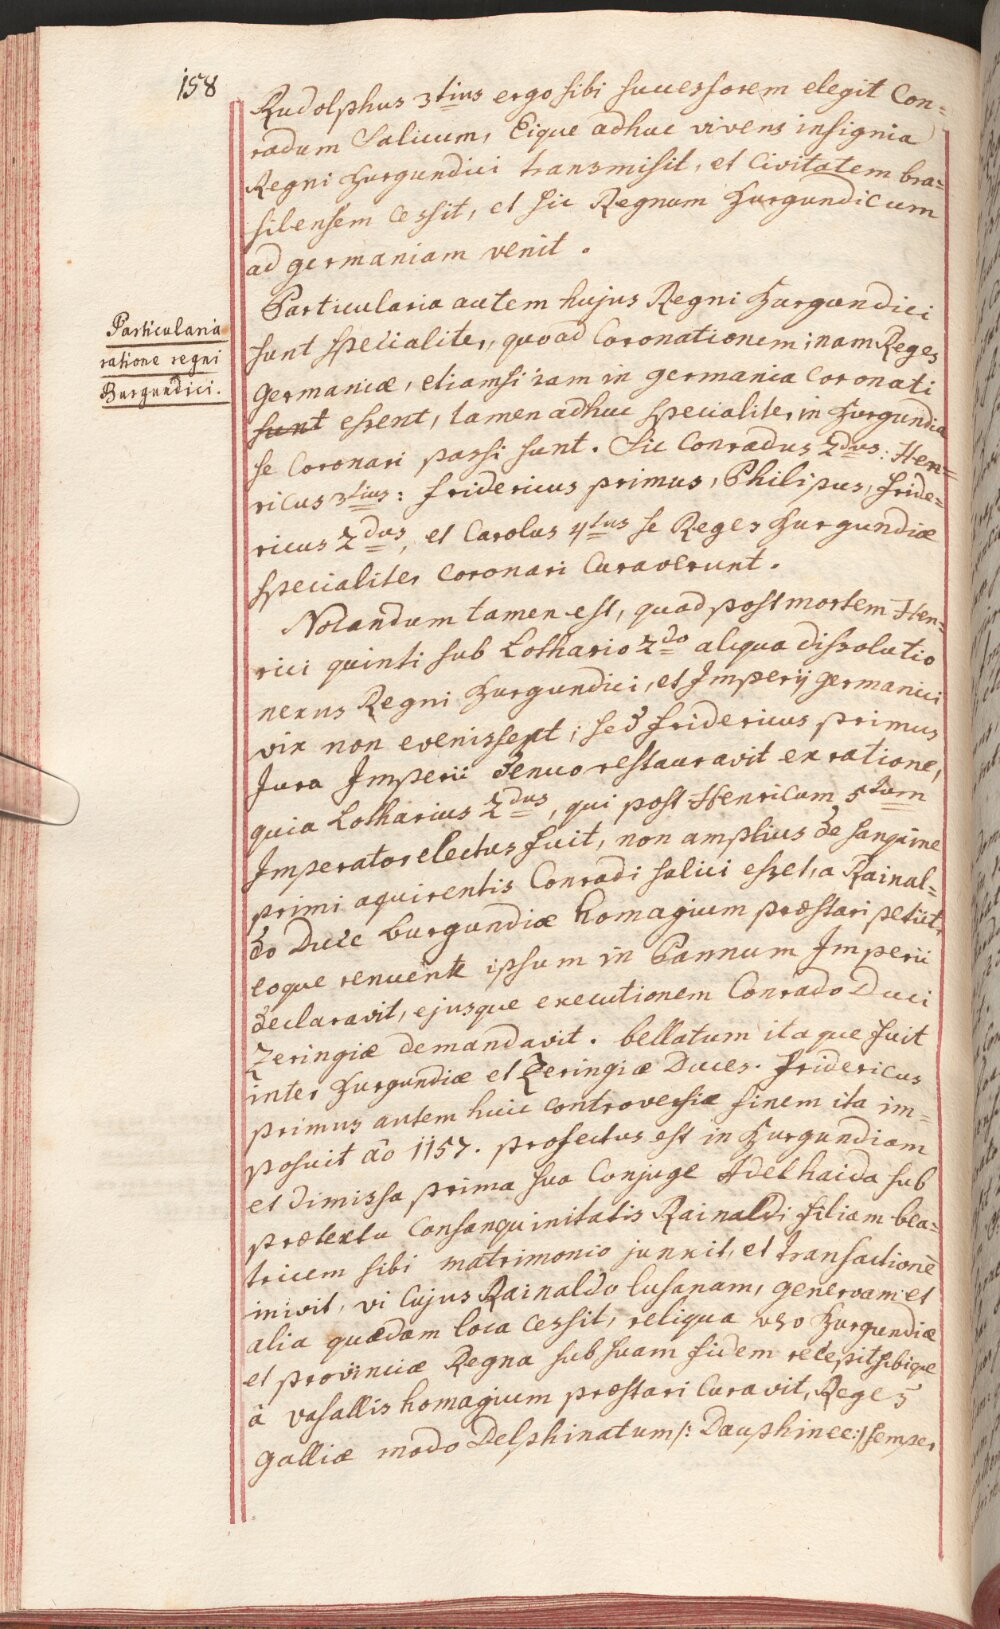 158
Rudolphus 3tius ergo sibi successorem elegit Con=
radum Salicum, Eique adhuc vivens insignia
Regni Burgundici transmisit, et Civitatem bra=
silensem cessit, et sic Regnum Burgundicum
ad germaniam venit.
Particularia
ratione regni
Burgundici.
Particularia autem hujus Regni Burgundici
sunt specialiter, quoad Coronationem, nam Reges
Germaniæ, etiamsi iam in germania Coronati
sunt essent, tamen adhuc specialiter in Burgundia
se Coronari passi sunt. Sic Conradus 2dus: Hen=
ricus 3tius: fridericus primus, Philipus, fride=
ricus 2dus, et Carolus 4tus se Reges Burgundiæ
specialiter coronari Curaverunt.
Notandum tamen est, quod post mortem Hen=
rici quinti sub Lothario 2do aliqua dissolutio
nexus Regni Burgundici, et Imperij germanici
vix non evenissept; sed fridericus primus
Jura Imperii denuo restauravit ex ratione,
quia Lotharius 2dus, qui post Henricum 5tum
Imperator electus fuit, non amplius de sanguine
primi aquirentis Conradi salici esset, a Rainal=
do Duce burgundiæ homagium præstari petiit,
eoque renuente ipsum in Bannum Imperii
declaravit, ejusque executionem Conrado Duci
Zeringiæ demandavit. bellatum itaque fuit
inter Burgundiæ et Zeringiæ Duces. Fridericus
primus autem huic controversiæ finem ita im=
posuit aô 1157. profectus est in Burgundiam
et dimissa prima sua Conjuge Adelhaida sub
prætextu Consanquinitatis Rainaldi filiam bea=
tricem sibi matrimonio junxit, et transactionē
inivit, vi cujus Rainaldo lusanam, genervam et
alia quædam loca cessit, reliqua vero Burgundiæ
et provinciæ Regna sub suam fidem recepit sibique
â vasallis homagium præstari Curavit, Reges
galliæ modo Delphinatum /: Dauphinee:/ semper